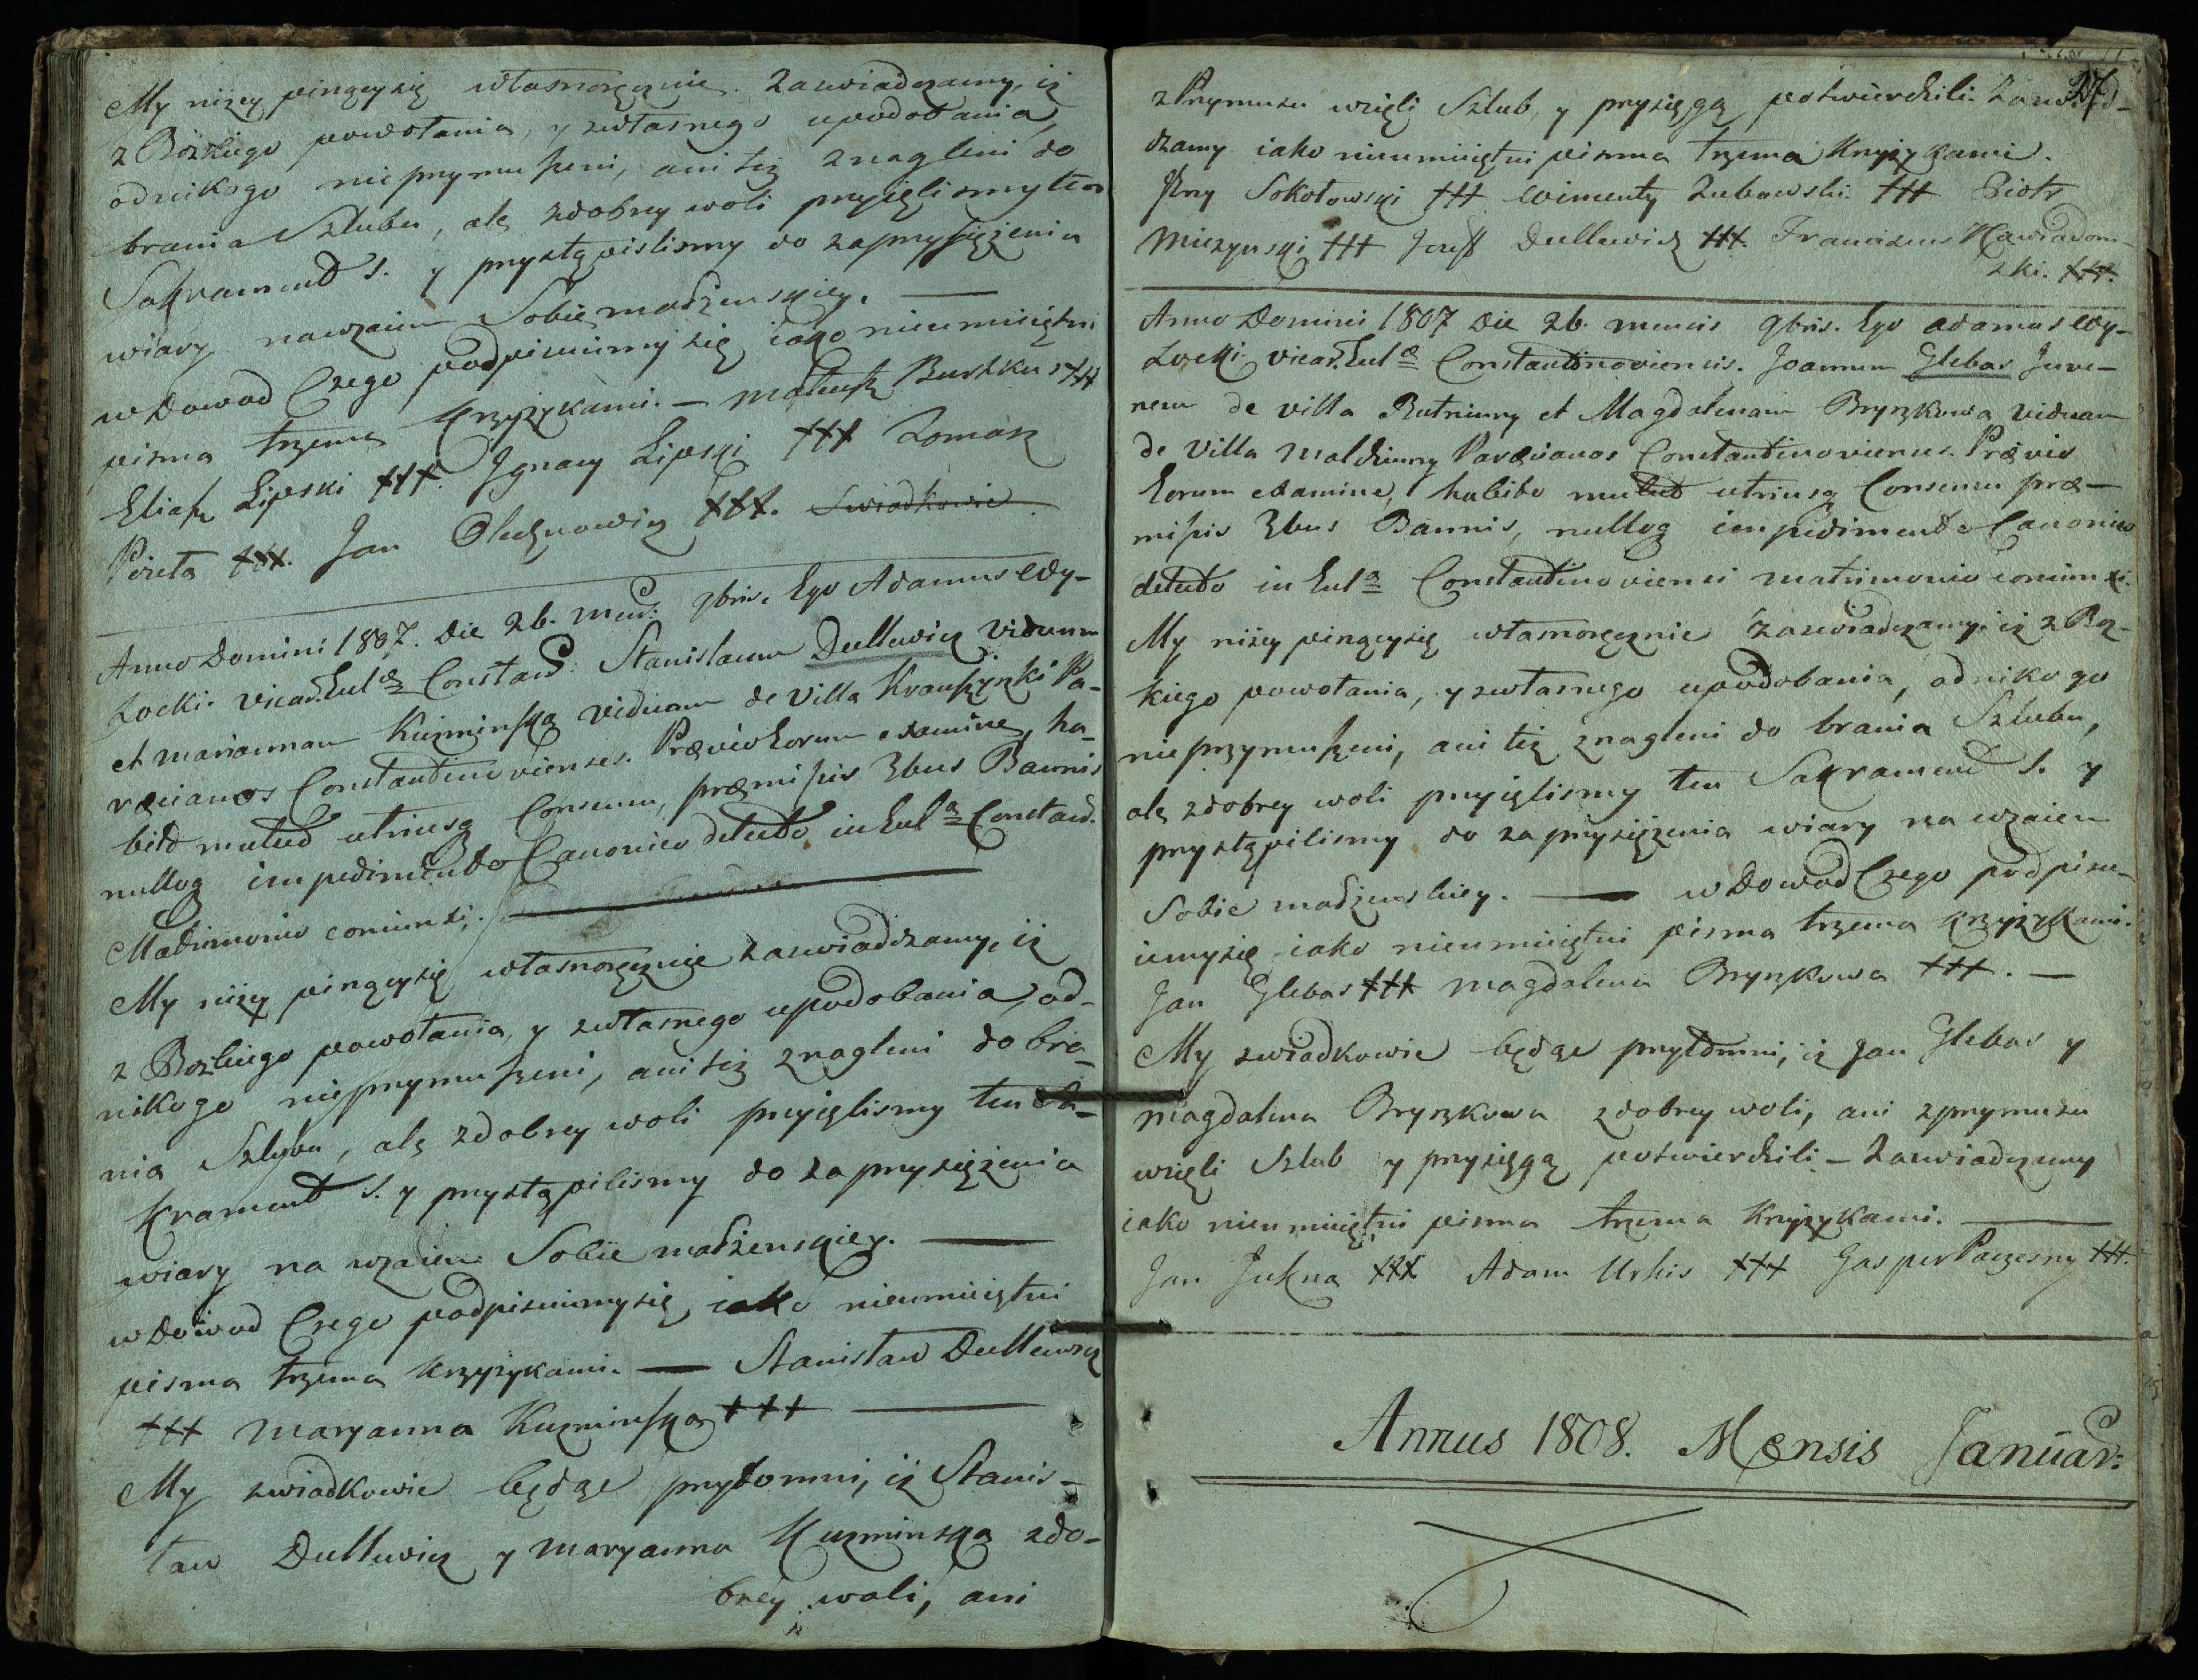 My niżey piszący się własnoręcznie zaswiadczamy, iż
z Bozkiego powołania, y zwłasnego upodobania,
odnikogo nieprzymuszeni, ani też znagleni do
brania Szlubu, ale zdobrey woli przyięlismy ten
Sakrament S. y przystąpilismy do zaprzysiężenia
wiary nawzaiem Sobie małżenskiey. —
w Dowod Czego podpisuiemy się iako nieumieiętni
pisma trzema krzyżykami. — Mateusz +++
Eliasz Lipski +++. Jgnacy Lipski +++ Tomasz
+++. Jan Olechnowicz +++. Swiadkowie
Anno Domini 1807. Die 26. Mens: 9bris. Ego Adamus Wy-
zocki. Vicar. Eccl[ae] Constant: Stanislaum Dullewicz Viduum
et Mariannam Kuzminską Viduam de Villa Krauszyszki Pa-
rœcianos Constantinovienses. Prævio Eorum examine, ha-
bito mutuo utriusq Consensu, præmissis 3bus Bannis
nulloq impedimento Canonico detecto in Eccl[a] Constant.
Matrimonio coniunxi. —
My niżey piszący się własnoręcznie zaswiadczamy, iż
z Bozkiego powołania, y zwłasnego upodobania, od-
nikogo nieprzymuszeni, ani też znagleni do bra-
nia Szlubu, ale zdobrey woli przyięlismy ten Sa-
krament S. y przystąpilismy do zaprzysiężenia
wiary na wzaiem Sobie małżenskiey. —
w Dowod Czego podpisuiemysię, iako nieumieiętni
pisma trzema krzyżykami. — Stanisław Dullewicz
+++ Maryanna Kuzminska +++ —
My zwiadkowie będąc przytomni, iż Stanis-
ław Dullewicz y Maryanna Kuzminska zdo-
brey woli, ani
27
z Przymusu wzięli Szlub, y przysięgą potwierdzili. Zaswiad-
czamy iako nieumieiętni pisma trzema Krzyżykami.
Jerzy Sokołowski +++ Wincenty Zubowski +++ Piotr
Miczynski +++ Jozeff Dullewicz +++. Franciszek Nawiadom-
ski. +++.
Anno Domini 1807 Die 26. mensis 9bris. Ego Adamus Wy-
zocki Vicar. Eccl[æ] Constantinoviensis. Joannem Glebas Juve-
nem de villa Rutniuny et Magdalenam Bryzkowa viduam
de Villa Maldziuny Parœcianos Constantinovienses. Prævio
Eorum examine, habito mutuo utriusq Consensu præ-
missis 3bus Bannis, nulloq impedimento Canonico
detecto in Eccl[a] Constantinoviensi matrimonio coniunxi.
My niżey piszący się własnoręcznie zaswiadczamy, iż z Boz-
kiego powołania, y zwłasnego upodobania, odnikogo
nieprzymuszeni, ani też znagleni do brania Szlubu,
ale zdobrey woli przyięlismy ten Sakrament S. y
przystąpilismy do zaprzysiężenia wiary na wzaiem
Sobie małżenskiey. — w Dowod Czego podpisu-
iemysię iako nieumieiętni pisma trzema krzyżykami.
Jan Glebas +++ Magdalena Bryzkowa +++. —
My zwiadkowie będąc przytomni, iż Jan Glebas y
Magdalena Bryzkowa zdobrey woli, ani zprzymusu
wzięli Szlub y przysięgą potwierdzili — Zaswiadczamy
iako nieumieiętni pisma trzema Krzyżykami. —
Jan Jukna +++ Adam Urkis +++ Gasper Paczesny +++.
Annus 1808. Mensis Januar: